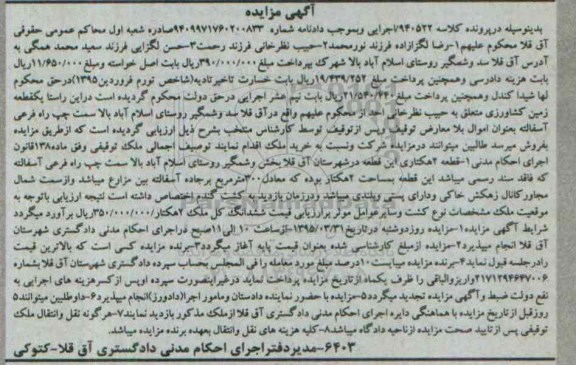 آگهی مزایده
بدینوسیله درپرونده کلاسه ۹۴۰۵۲۲/اجرایی وبموجب دادنامه شماره ۹۴۰۹۹۷۱۷۶۰۲۰۰۸۳۳صادره شعبه اول محاکم عمومی حقوقی
آق قلا محکوم علیهم۱-رضا لگزازاده فرزند نورمحمد۲-حبیب نظرخانی فرزند رحمت۳-حسن لگزایی فرزند سعید محمد همگی به
آدرس آق قلا سد وشمگیر روستای اسلام آباد بالا شهرک بپرداخت مبلغ ۳۹۰/۰۰۰/۰۰۰ریال بابت اصل خواسته ومبلغ۱۱/۶۵۰/۰۰۰ریال
بابت هزینه دادرسی وهمچنین پرداخت مبلغ ۱۹/۴۳۹/۲۵۲ریال بابت خسارت تاخیرتادیه(شاخص تورم فروردین۱۳۹۵)درحق محکوم
لها شیدا کندل وهمچنین پرداخت مبلغ ریال بابت نیم عشر اجرایی درحق دولت محکوم گردیده است دراین راستا یکقطعه
زمین کشاورزی متعلق به حبیب نظرخانی احد از محکوم علیهم واقع درآق قلا سد وشمگیر روستای اسلام آباد بالا سمت چپ راه فرعی
آسفالته بعنوان اموال بلا معارض توقیف وپس ازتوقیف توسط کارشناس منتخب بشرح ذیل ارزیابی گردیده است که ازطریق مزایده
بفروش میرسد طالبین میتوانند درمزایده شرکت ونسبت به خرید ملک اقدام نمایند توصیف اجمالی ملک توقیفی وفق ماده۱۳۸قانون
اجرای احکام مدنی ۱-قطعه ۲هکتاری این قطعه درشهرستان آق قلا بخش وشمگیر روستای اسلام آباد بالا سمت چپ راه فرعی آسفالته
که فاقد سند رسمی میباشد این قطعه بمساحت ۲هکتار بوده که معادل۳۰۰مترمربع برجاده آسفالته بین مزارع میباشد وازسمت شمال
مجاورکانال زهکش خاکی ودارای پستی وبلندی میباشد ودرزمان بازدید به کشت گندم اختصاص داشته است نتیجه ارزیابی باتوجه به
موقعیت ملک مشخصات نوع کشت وسایرعوامل موثر برارزیابی قیمت ششدانگ کل ملک ۲هکتار/۳۵۰/۰۰۰/۰۰۰ریال برآورد میگردد
شرایط آگهی مزایده۱-مزایده روزدوشنبه درتاریخ ۱۳۹۵/۰۳/۳۱-ازساعت ۱۰ الی۱۱صبح دراجرای احکام مدنی دادگستری شهرستان
آق قلا انجام میپذیرد۲-مزایده ازمبلغ کارشناسی شده بعنوان قیمت پایه آغاز میگردد۳-برنده مزایده کسی است که بالاترین قیمت
رادرجلسه قبول نماید۴-برنده مزایده میبایست۱۰درصد مبلغ مورد معامله را فی المجلس بحساب سپرده دادگستری شهرستان آق قلا بشماره
۲۱۷۱۲۹۴۶۴۷۰۰۶واریزوالباقی را ظرف یکماه ازتاریخ مزایده پرداخت نماید درغیراینصورت سپرده اوپس ازکسرهزینه های اجرایی به
نفع دولت ضبط وآگهی مزایده تجدید میگردد۵-مزایده با حضور نماینده دادستان ومامور اجرا(دادورز)انجام میپذیرد۶-داوطلبین میتوانند۵
روزقبل ازتاریخ مزایده با هماهنگی دایره اجرای احکام مدنی دادگستری آق قلا ازملک مذکور بازدید نمایند۷-هرگونه نقل وانتقال ملک
توقیفی پس ازتایید صحت مزایده ازناحیه دادگاه میباشد۸-کلیه هزینه های نقل وانتقال بعهده برنده مزایده میباشد.
۶۴۰۳-مدیردفتراجرای احکام مدنی دادگستری آق قلا-کتوکی